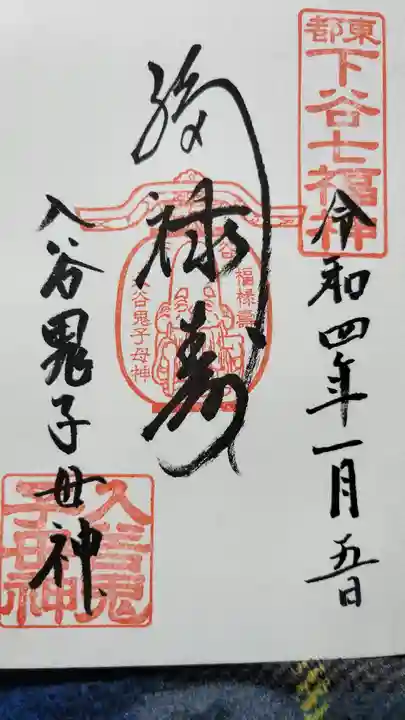 東都
下谷七福神
令和四年一月五日
福禄寿
福禄壽
入谷鬼子母神
入谷鬼子母神
入谷鬼
子母神